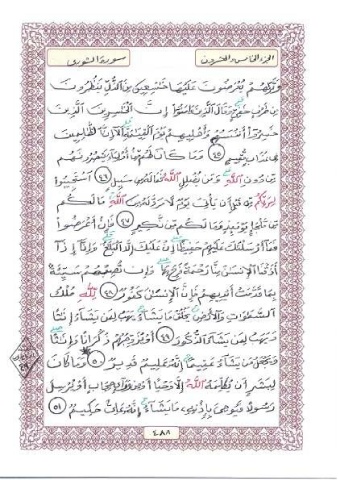 الجزء الخامس والعشرون
سورة الشورى
وَتَرَىٰهُمْ يُعْرَضُونَ عَلَيْهَا خَٰشِعِينَ مِنَ الذُّلِّ يَنظُرُونَ
مِن طَرْفٍ خَفِيٍّ وَقَالَ الَّذِينَ ءَامَنُوٓا۟ إِنَّ الْخَٰسِرِينَ الَّذِينَ
خَسِرُوٓا۟ أَنفُسَهُمْ وَأَهْلِيهِمْ يَوْمَ الْقِيَٰمَةِ أَلَآ إِنَّ الظَّٰلِمِينَ
فِى عَذَابٍ مُّقِيمٍ ٤٥ وَمَا كَانَ لَهُم مِّنْ أَوْلِيَآءَ يَنصُرُونَهُم
مِّن دُونِ اللَّهِ وَمَن يُضْلِلِ اللَّهُ فَمَا لَهُۥ مِن سَبِيلٍ ٤٦ اسْتَجِيبُوا۟
لِرَبِّكُم مِّن قَبْلِ أَن يَأْتِىَ يَوْمٌ لَّا مَرَدَّ لَهُۥ مِنَ اللَّهِ مَا لَكُم
مِّن مَّلْجَإٍ يَوْمَئِذٍ وَمَا لَكُم مِّن نَّكِيرٍ ٤٧ فَإِنْ أَعْرَضُوا۟
فَمَآ أَرْسَلْنَٰكَ عَلَيْهِمْ حَفِيظًا إِنْ عَلَيْكَ إِلَّا الْبَلَٰغُ وَإِنَّآ إِذَآ
أَذَقْنَا الْإِنسَٰنَ مِنَّا رَحْمَةً فَرِحَ بِهَا وَإِن تُصِبْهُمْ سَيِّئَةٌۢ
بِمَا قَدَّمَتْ أَيْدِيهِمْ فَإِنَّ الْإِنسَٰنَ كَفُورٌ ٤٨ لِّلَّهِ مُلْكُ
السَّمَٰوَٰتِ وَالْأَرْضِ يَخْلُقُ مَا يَشَآءُ يَهَبُ لِمَن يَشَآءُ إِنَٰثًا
وَيَهَبُ لِمَن يَشَآءُ الذُّكُورَ ٤٩ أَوْ يُزَوِّجُهُمْ ذُكْرَانًا وَإِنَٰثًا
وَيَجْعَلُ مَن يَشَآءُ عَقِيمًا إِنَّهُۥ عَلِيمٌ قَدِيرٌ ٥٠ وَمَا كَانَ
لِبَشَرٍ أَن يُكَلِّمَهُ اللَّهُ إِلَّا وَحْيًا أَوْ مِن وَرَآئِ حِجَابٍ أَوْ يُرْسِلَ
رَسُولًا فَيُوحِىَ بِإِذْنِهِۦ مَا يَشَآءُ إِنَّهُۥ عَلِىٌّ حَكِيمٌ ٥١
٤٨٨